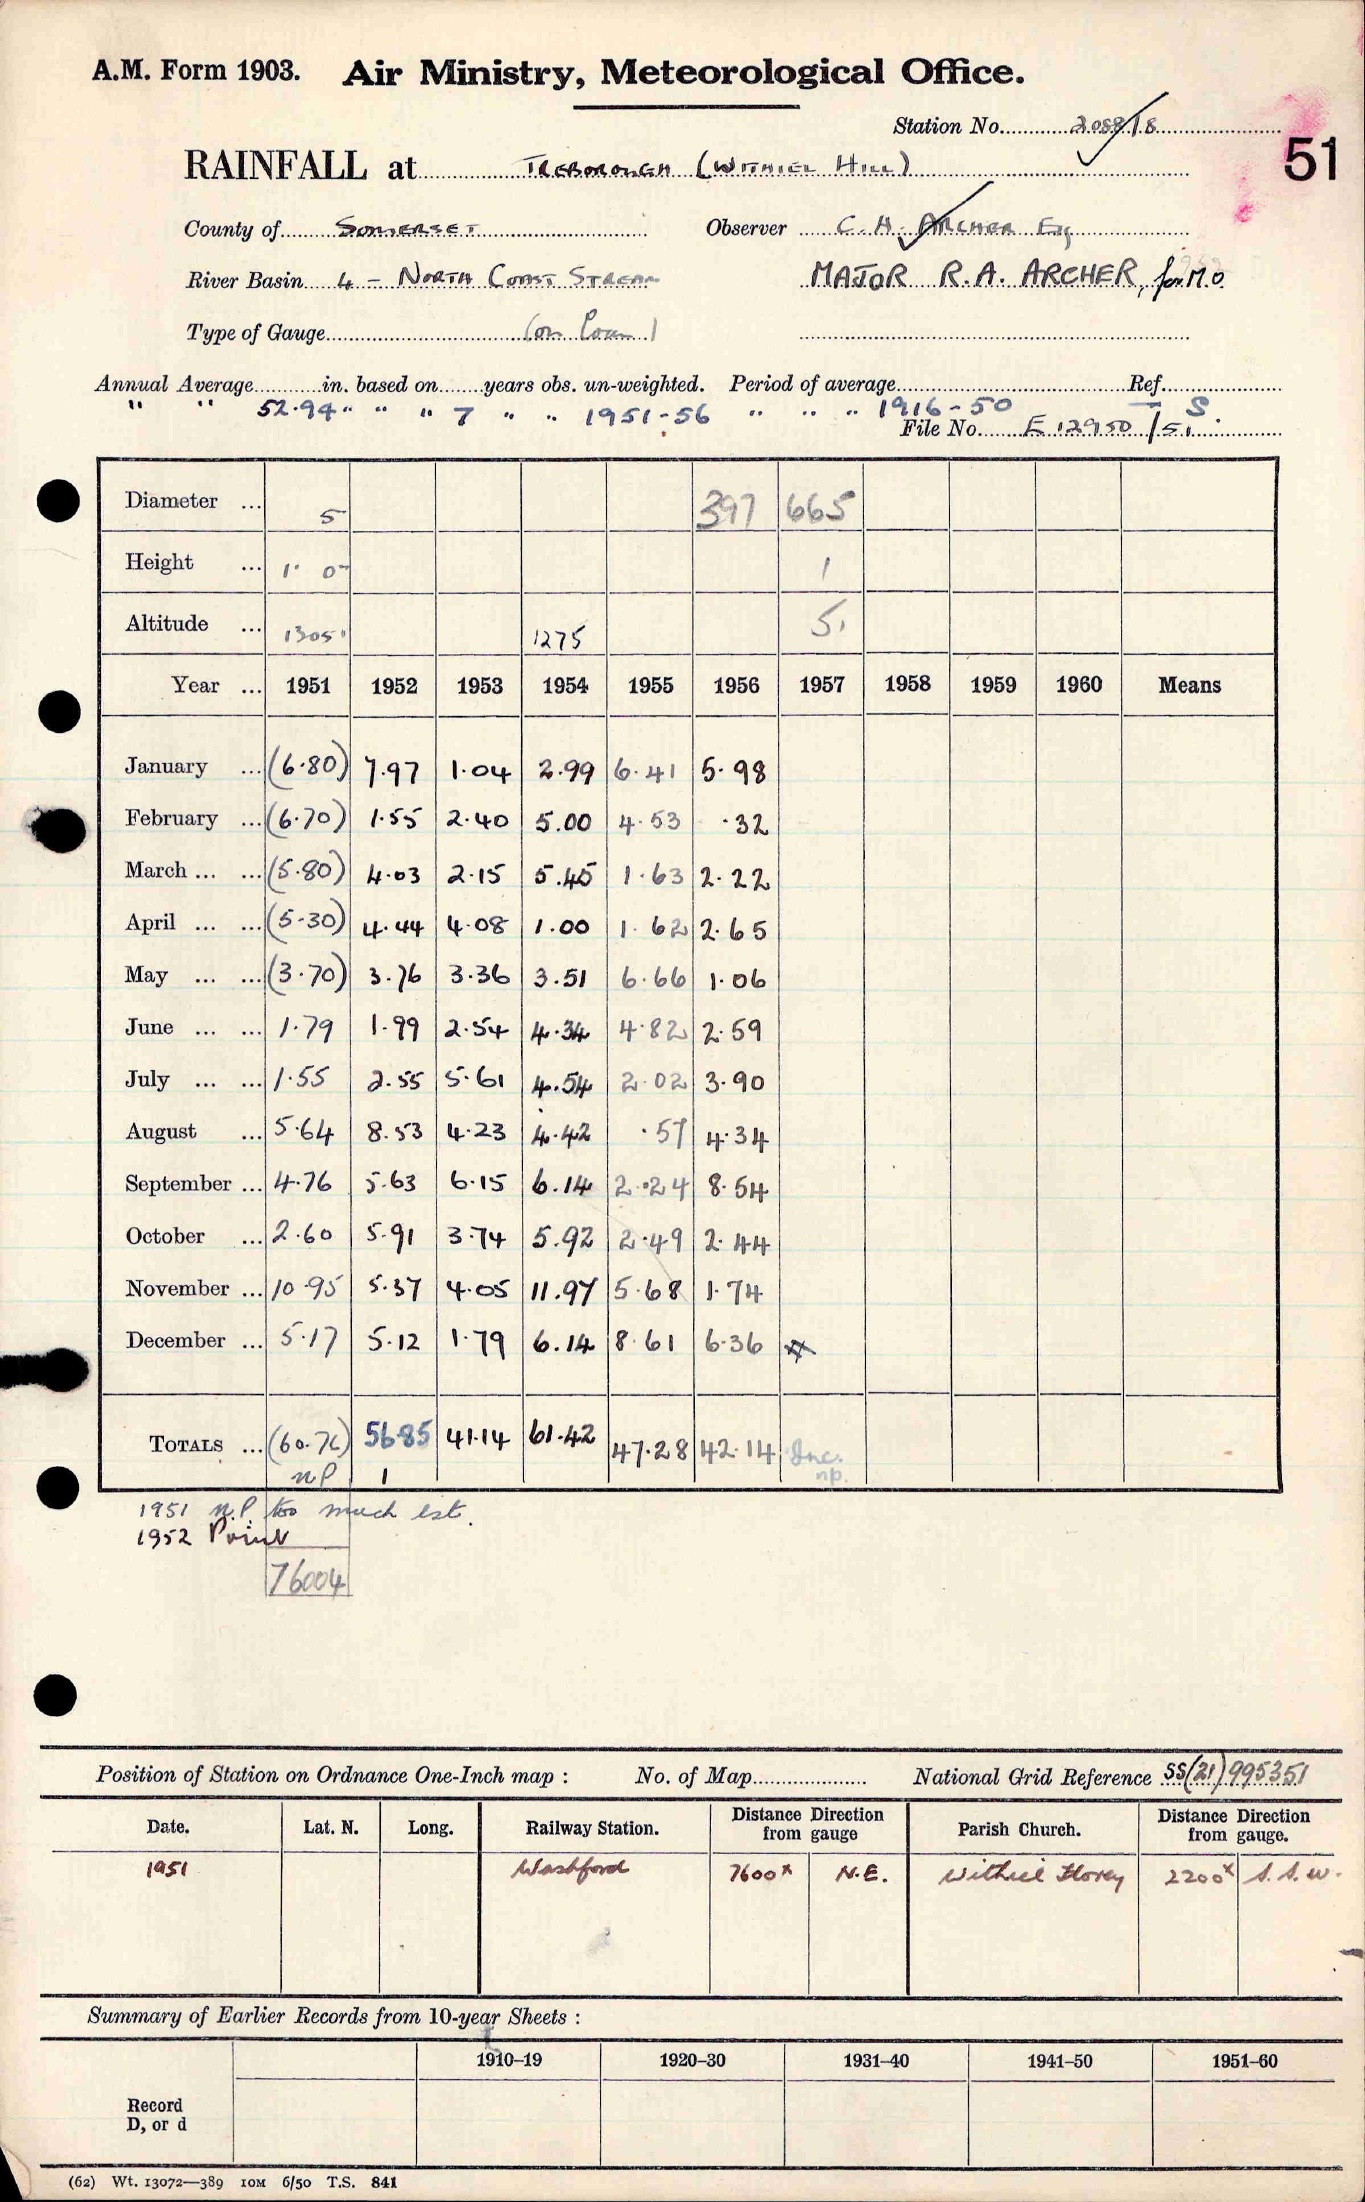 A.M. Form 1903. Air Ministry, Meteorological Office.
Station No. 2088/8
51
RAINFALL at Treborough (Withiel Hill)
County of Somerset Observer C. H. Archer Esq
River Basin 4 - North Coast Stream MAJOR R.A. ARCHER, for M.O
Type of Gauge (on loan)
Annual Average in. based on years obs. un-weighted. Period of average Ref.
" " 52.94 " " " 7 " " 1951-56 " " " 1916-50 S
File No. E 12950/51
Diameter ... 5 397 665
Height ... 1' 0" 1
Altitude ... 1305' 1275 5.
Year ... 1951 1952 1953 1954 1955 1956 1957 1958 1959 1960 Means
January ... (6.80) 7.97 1.04 2.99 6.41 5.98
February ... (6.70) 1.55 2.40 5.00 4.53 .32
March ... ... (5.80) 4.03 2.15 5.45 1.63 2.22
April ... ... (5.30) 4.44 4.08 1.00 1.62 2.65
May ... ... (3.70) 3.76 3.36 3.51 6.66 1.06
June ... ... 1.79 1.99 2.54 4.34 4.82 2.59
July ... ... 1.55 2.55 5.61 4.54 2.02 3.90
August ... 5.64 8.53 4.23 4.42 .57 4.34
September ... 4.76 5.63 6.15 6.14 2.24 8.54
October ... 2.60 5.91 3.74 5.92 2.49 2.44
November ... 10.95 5.37 4.05 11.97 5.68 1.74
December ... 5.17 5.12 1.79 6.14 8.61 6.36
Totals ... (60.76) 56.85 41.14 61.42 47.28 42.14 Inc.
nP 1 np.
1951 n.P. too much est.
1952 Point
76004
Position of Station on Ordnance One-Inch map : No. of Map National Grid Reference SS(21)995351
Date. Lat. N. Long. Railway Station. Distance Direction from gauge Parish Church. Distance Direction from gauge.
1951 Washford 7600x N.E. Withiel Florey 2200x S.S.W.
Summary of Earlier Records from 10-year Sheets :
1910–19 1920–30 1931–40 1941–50 1951–60
Record
D, or d
(62) Wt. 13072—389 10M 6/50 T.S. 841